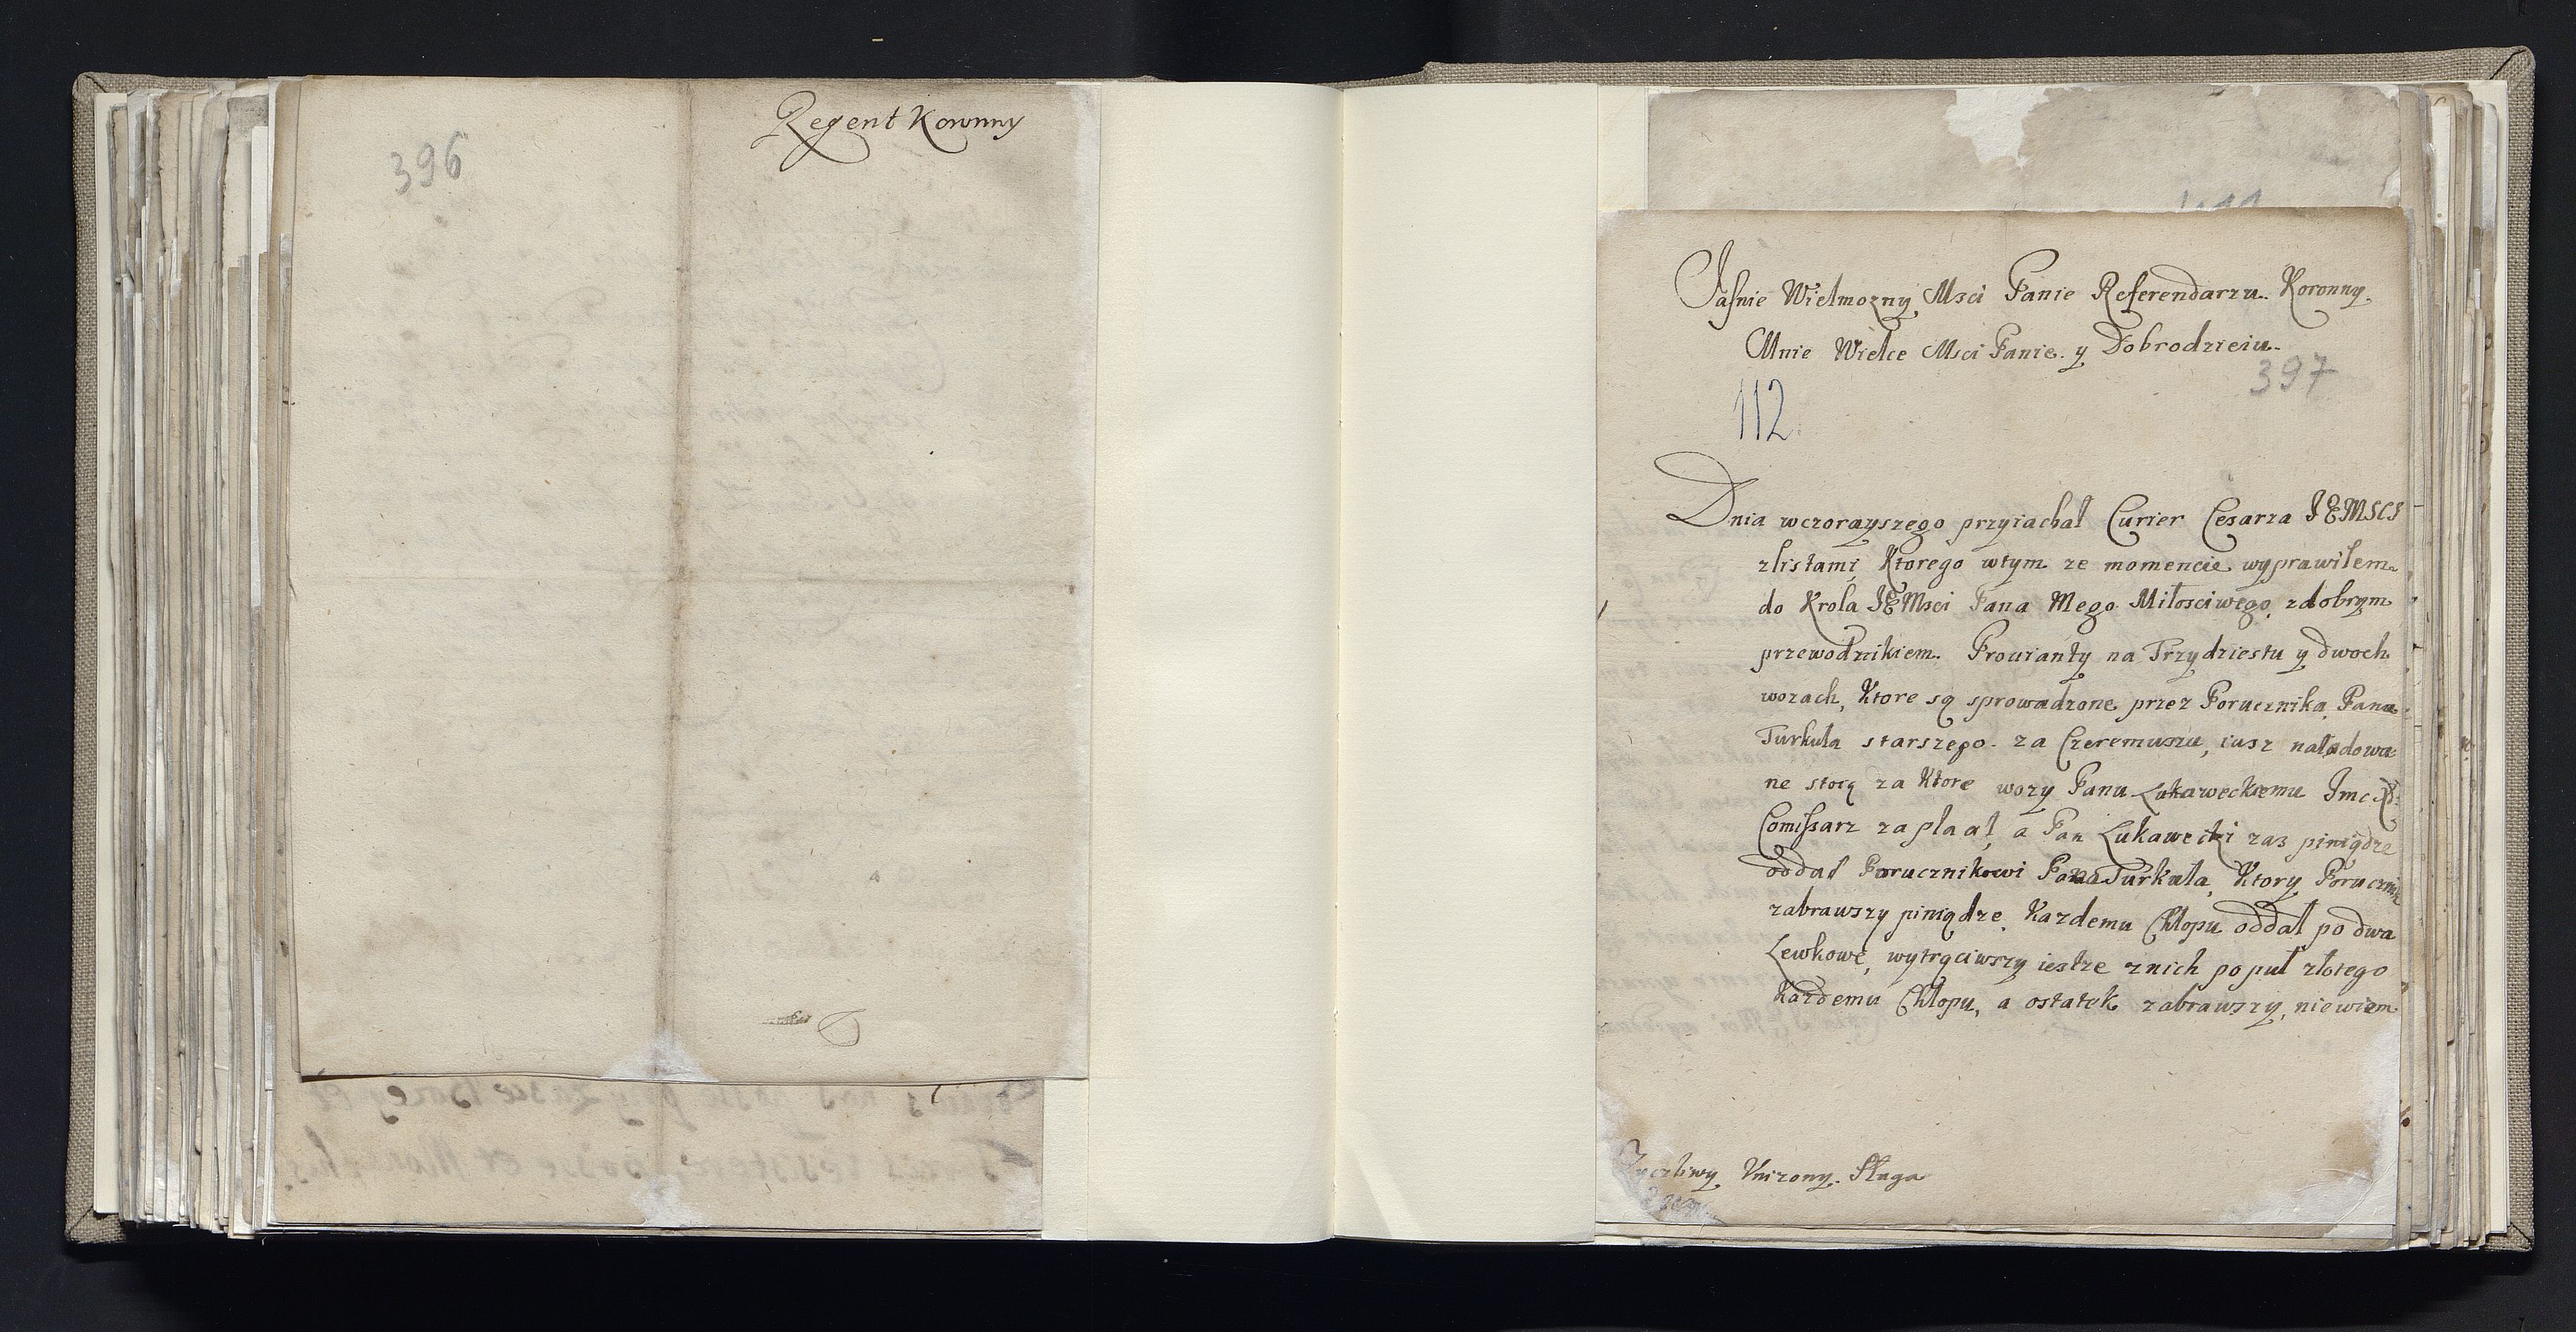 Regent Koronny
396
Jasnie Wielmozny Msci Panie Referendarzu Koronny
Mnie Wielce Msci Panie y Dobrodzieiu
397
112
Dnia wczorayszego przyiachał Curier Cesarza JEMSCI
zlistami, Ktorego wtym ze momencie wyprawiłem
do Krola JEMsci Pana Mego Miłosciwego, zdobrym
przewodnikiem. Prowianty na Trzydziestu y dwoch
wozach, Ktore są sprowadzone przez Porucznika, Pana
Turkuła starszego za Czeremuszu, iusz naładowa
ne stoią za Ktore wozy Panu Łukaweckiemu Jmc
Comissarz zapłacał, a Pan Łukawecki zas piniądze
oddał Porucznikowi Pana Turkuła, Ktory Porucznik
zabrawszy piniądze, Kazdemu Chłopu oddał po dwa
Lewkowe, wytrąciwszy ieszcze znich po puł złotego
Kazdemu Chłopu, a ostatek zabrawszy, niewiem
Zyczliwy Vnizony Sługa